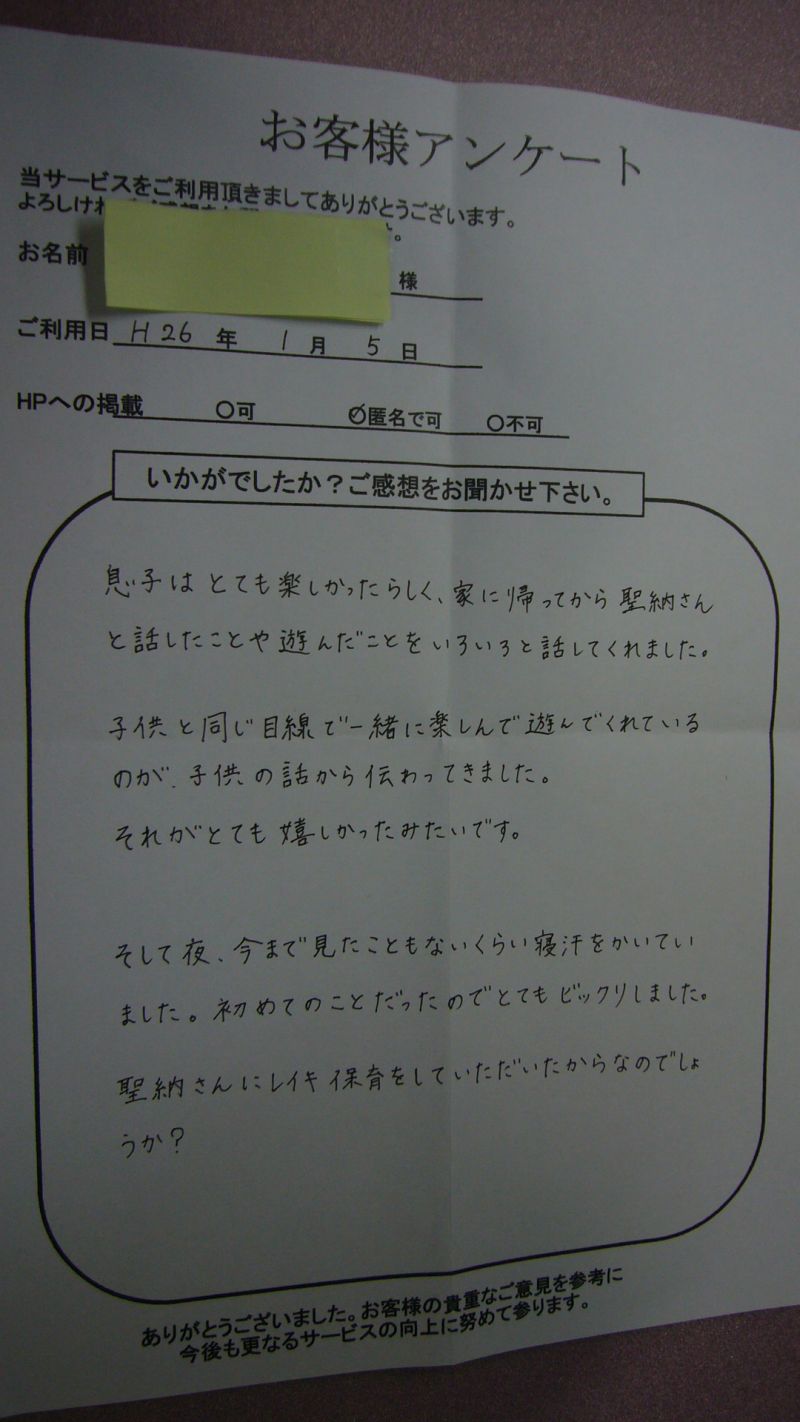 お客様アンケート
当サービスをご利用頂きましてありがとうございます。
よろしければ
す。
お名前 様
ご利用日 H26 年 1 月 5 日
HPへの掲載 ○可 ○匿名で可 ○不可
いかがでしたか？ご感想をお聞かせ下さい。
息子は とても楽しかったらしく、家に帰ってから 聖納さん
と話したことや遊んだことをいろいろと話してくれました。
子供と同じ目線で一緒に楽しんで遊んでくれている
のが、子供の話から伝わってきました。
それがとても嬉しかったみたいです。
そして夜、今まで見たこともないくらい寝汗をかいてい
ました。初めてのことだったのでとてもビックリしました。
聖納さんにレイキ保育をしていただいたからなのでしょ
うか？
ありがとうございました。お客様の貴重なご意見を参考に
今後も更なるサービスの向上に努めて参ります。